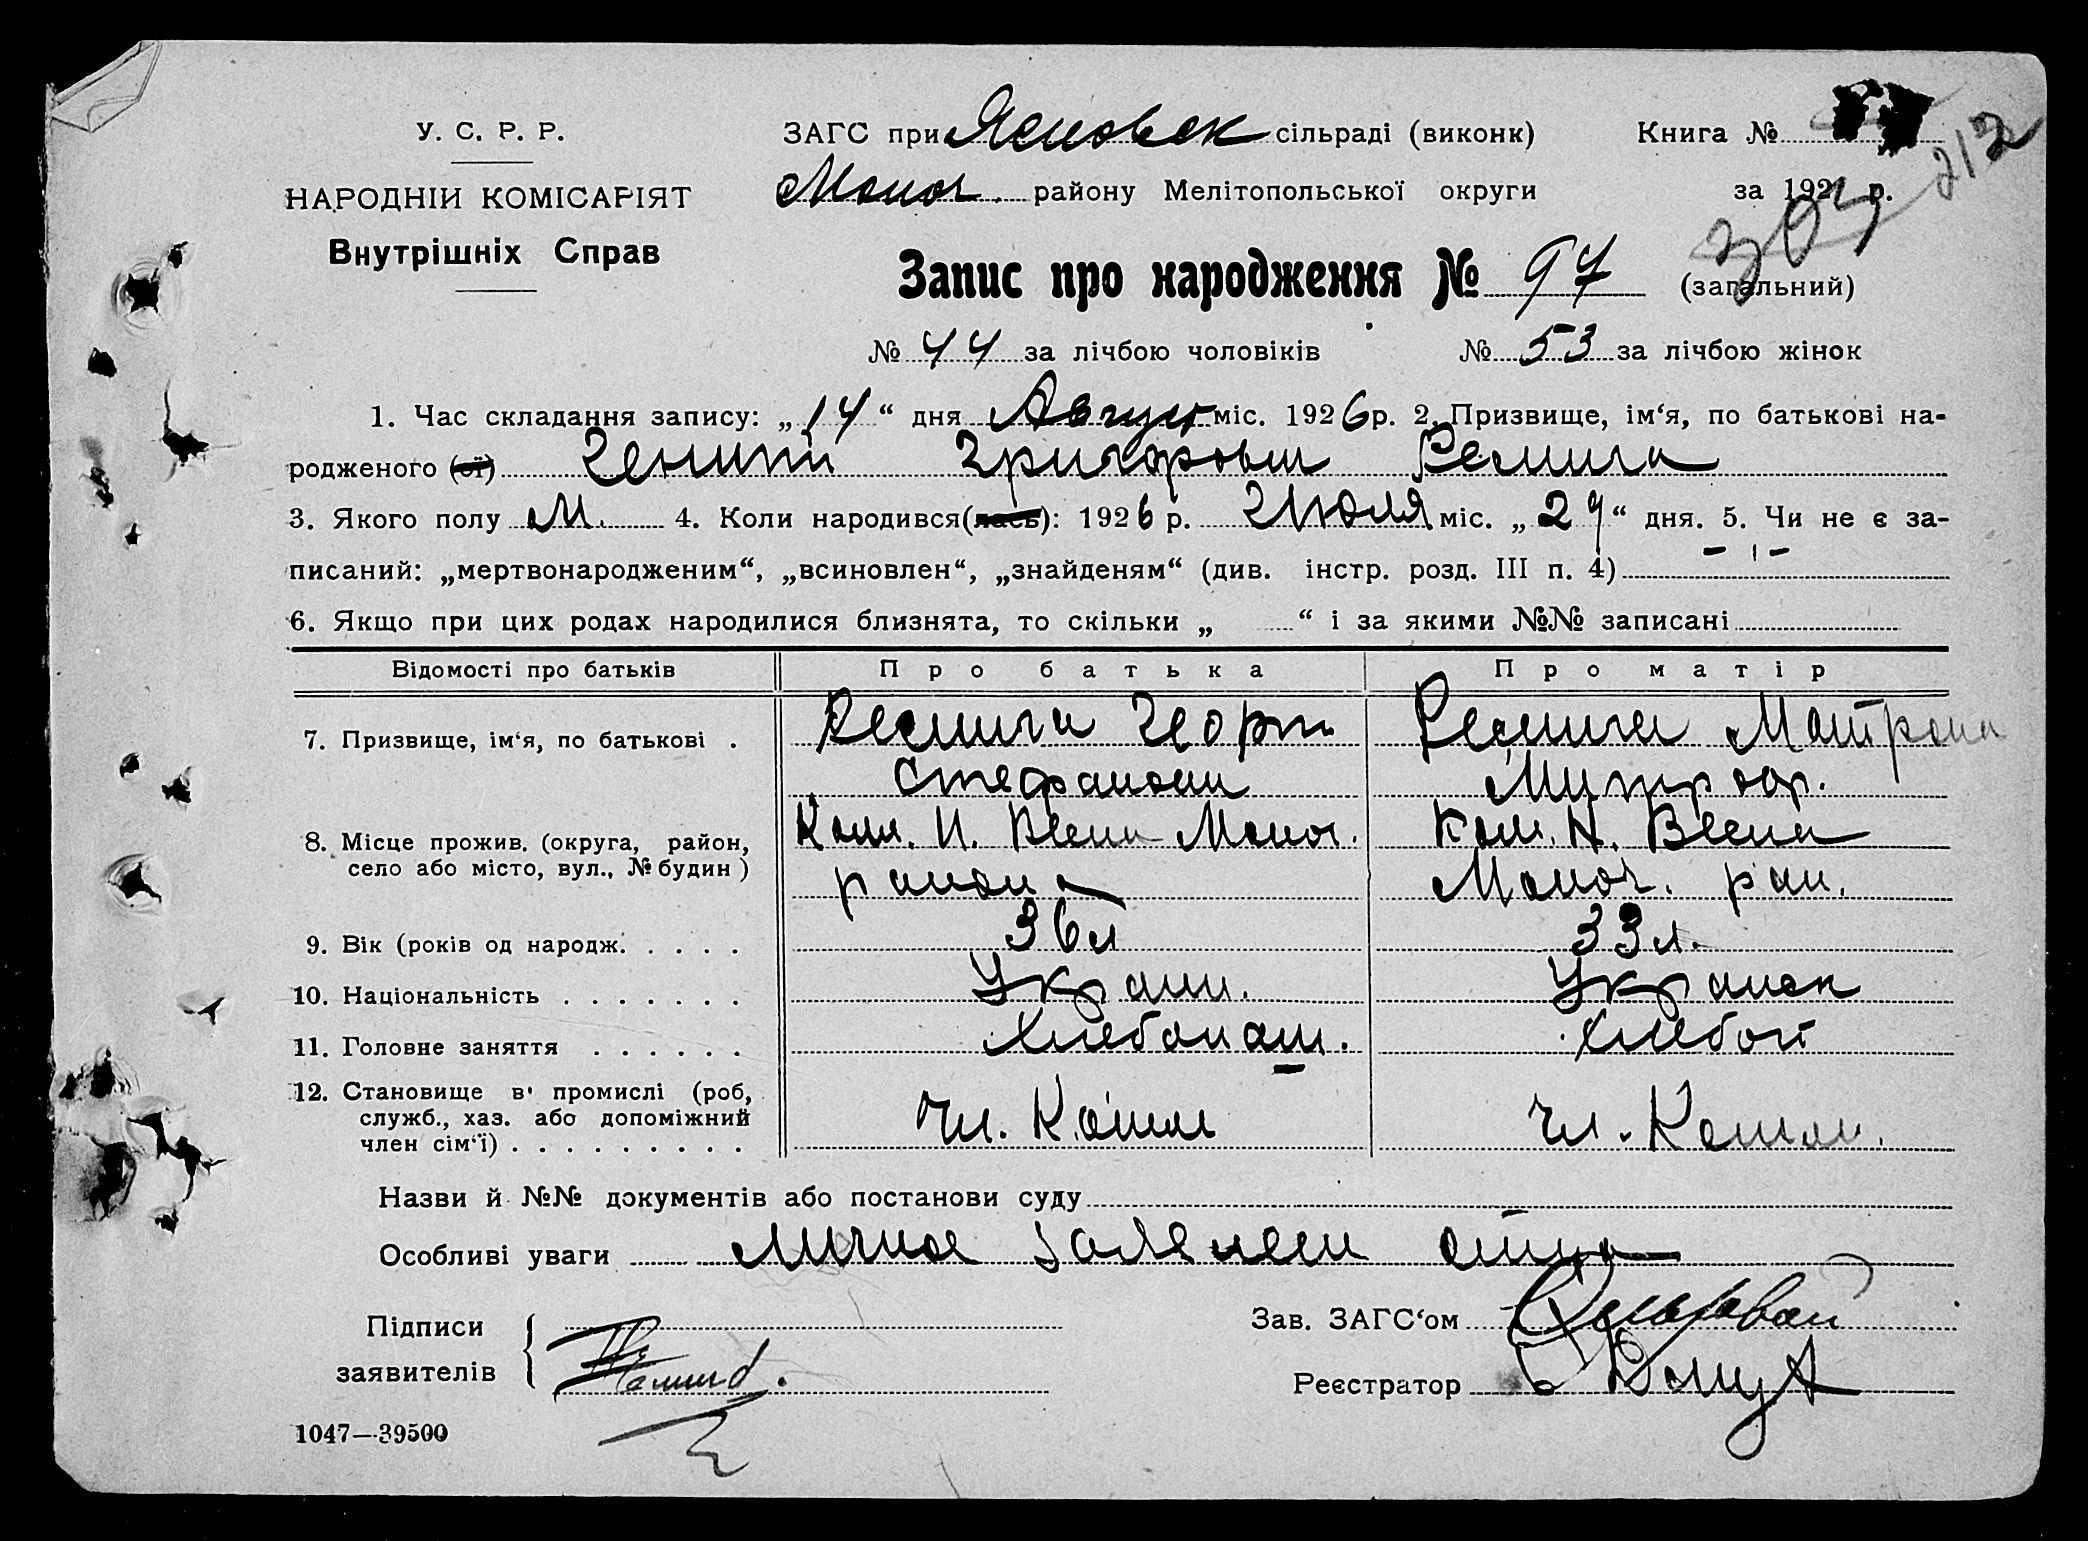 У. С. Р. Р.
НАРОДНІЙ КОМІСАРІЯТ
Внутрішніх Справ
ЗАГС при Ясновск сільраді (виконк)
Молоч. району Мелітопольської округи
Книга №
212
за 192 р.
Запис про народження № 97 (загальний)
№ 44 за лічбою чоловіків № 53 за лічбою жінок
1. Час складання запису: „14“ дня Август міс. 1926 р. 2. Призвище, ім‘я, по батькові на-
родженого (ої) Григорович
3. Якого полу М. 4. Коли народився(лась): 1926 р. Июля міс. „29“ дня. 5. Чи не є за-
писаний: „мертвонародженим“, „всиновлен“, „знайденям“ (див. інстр. розд. III п. 4)
6. Якщо при цих родах народилися близнята, то скільки „ “ і за якими №№ записані
Відомості про батьків Про батька Про матір
7. Призвище, ім‘я, по батькові . Георг Матрона
Стефанови Митроф.
8. Місце прожив. (округа, район, село або місто, вул., № будин) Ком. И. Весна Молоч. Ком. Н. Весна
района Молоч. рай.
9. Вік (років од народж. . . . . 36 л 33 л.
10. Національність . . . . . . . Украин. Украинк
11. Головне заняття . . . . . . Хлебопаш. Хлебоп
12. Становище в промислі (роб, служб., хаз. або допоміжний член сім‘ї) . . . . . . . . . Чл. Комм Чл. Комм.
Назви й №№ документів або постанови суду
Особливі уваги Личное Заявлени отца
Підписи
заявителів
Зав. ЗАГС‘ом
Реєстратор
1047—39500